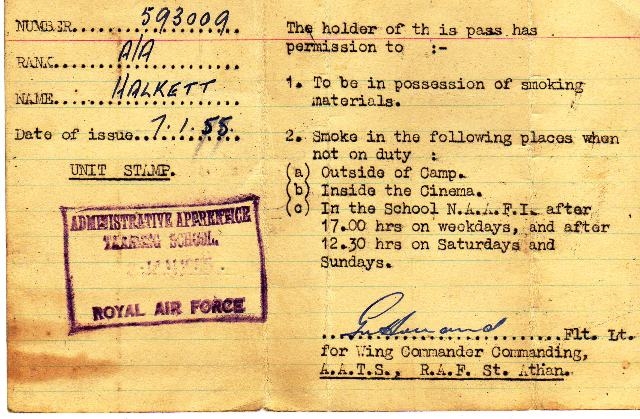 NUMBER 593009
RANK A/A
NAME HALKETT
Date of issue 7.1.55
UNIT STAMP.
ADMINISTRATIVE APPRENTICE
TRAINING SCHOOL,
ROYAL AIR FORCE
The holder of th is pass has
permission to :-
1. To be in possession of smoking
materials.
2. Smoke in the following places when
not on duty :
(a) Outside of Camp.
(b) Inside the Cinema.
(c) In the School N.A.A.F.I. after
17.00 hrs on weekdays, and after
12.30 hrs on Saturdays and
Sundays.
Flt. Lt.
for Wing Commander Commanding,
A.A.T.S., R.A.F. St. Athan.